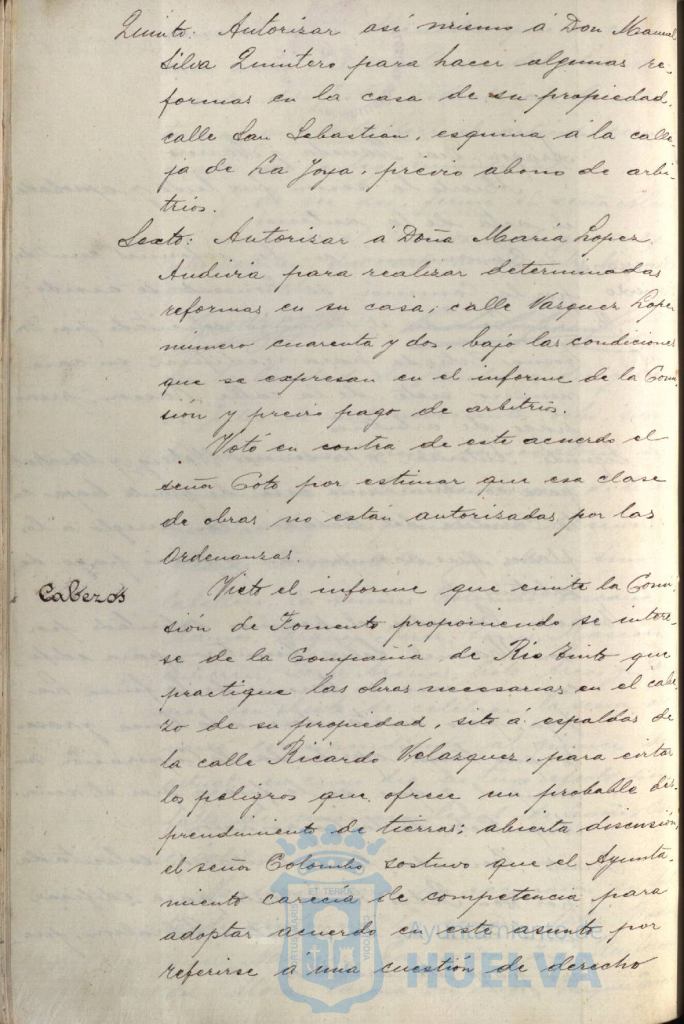 Quinto: Autorizar así mismo á Don Manuel
Silva Quintero para hacer algunas re-
formas en la casa de su propiedad,
calle San Sebastian, esquina á la calle-
ja de La Joya, prévio abono de arbi-
trios.
Sexto: Autorizar á Doña Maria Lopez
para realizar determinadas
reformas en su casa, calle Vazquez Lopez
número cuarenta y dos, bajo las condiciones
que se expresan en el informe de la Comi-
sión y previo pago de arbitrios.
Votó en contra de este acuerdo el
señor Coto por estimar que esa clase
de obras no están autorizadas por las
Ordenanzas.
Cabezos
Visto el informe que emite la Comi-
sión de Fomento proponiendo se intere-
se de la Compañia de Rio Tinto que
practique las obras necesarias en el cabe-
zo de su propiedad, sito á espaldas de
la calle Ricardo Velazquez, para evitar
los peligros que ofrece un probable des-
prendimiento de tierras; abierta discusión,
el señor Colombo sostuvo que el Ayunta-
miento carecía de competencia para
adoptar acuerdo en este asunto por
referirse á una cuestión de derecho
Ayuntamiento de
HUELVA